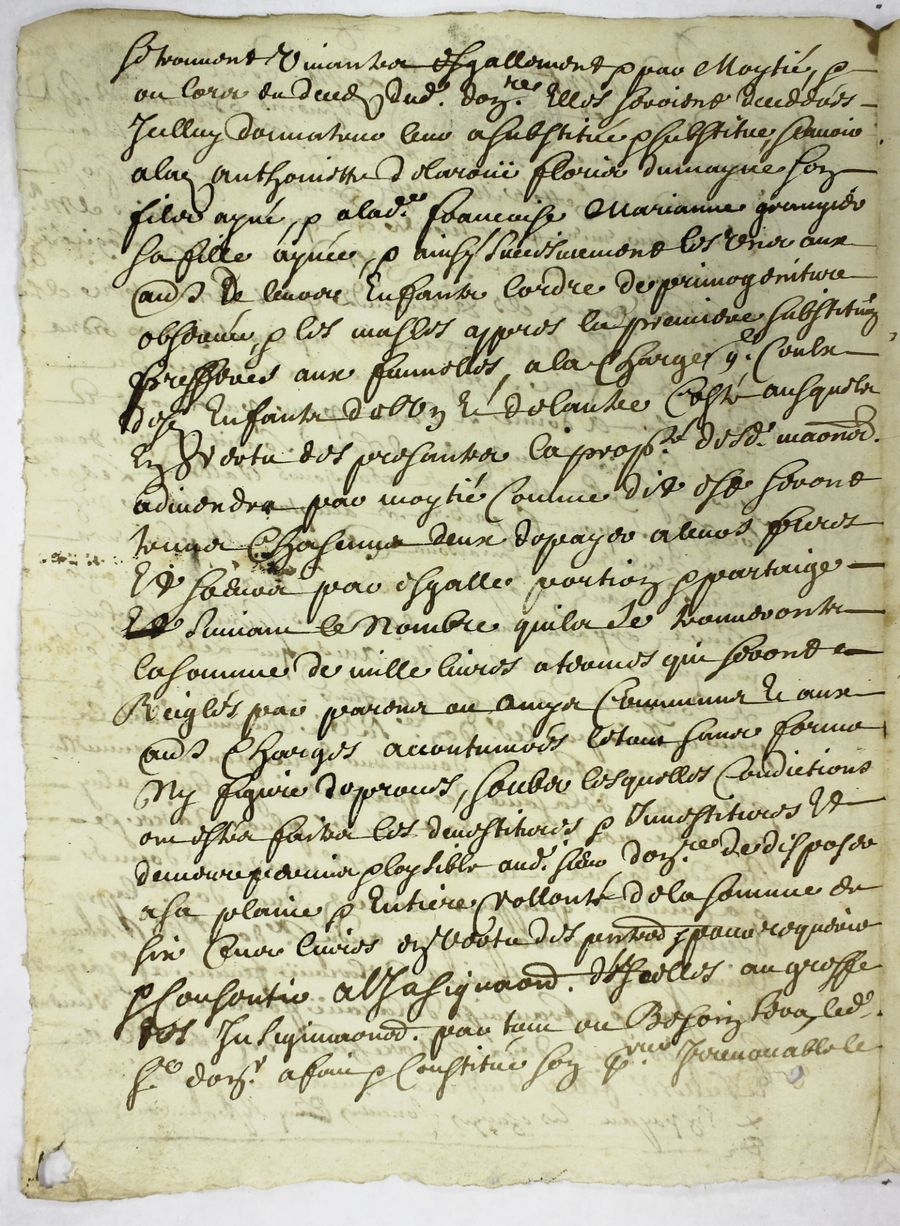 se trouvent vivantes esgallement & par Moytié, &
ou lors du deces dud. don.re Elles seroient decedées
Icelluy donnateur leur a substitué & substitue, sçavoir
a la Anthoinette delaroü Floris dumayne son
filz ayné, & a lad.e françoise Marianne grangier
sa fille aynée, & ainsy successivement les uns aux
au de leurs Enfants l'ordre de primogeniture
observée, & les masles appres la premiere substitution
prefferés aux fumelles, a la Charge q.e Ceulx
desd Enfants de l'un Et de lautre Costé ausquels
En Vertu des presantes la prop.té desd. maisons
adviendra par moytié Comme dit est seront
tenus Chascung deux de payer a leurs freres
Et soeurs par esgalle portion & partaige
suivant le Nombre quils se trouveront
la somme de mille livres a termes qui seront
Reiglés par parens ou amys Communs Et aux
Charges accoutumées le tout sans forme
Ny figure de proces, soubz lesquelles Condictions
ont estés faites les devestitures & Investitures Et
demeure permis & loysible aud. sieur don.re de disposer
a sa plaine & Entiere Vollonté de la somme de
six Cens livres en Vertu des pour requerir
& Consentir a l'Insignuaon. d'Icelles au greffe
des Insignuaons. par tout ou Besoin sera, led.
s.r don.r a fait & Constitué son p.reur Irrevocable le